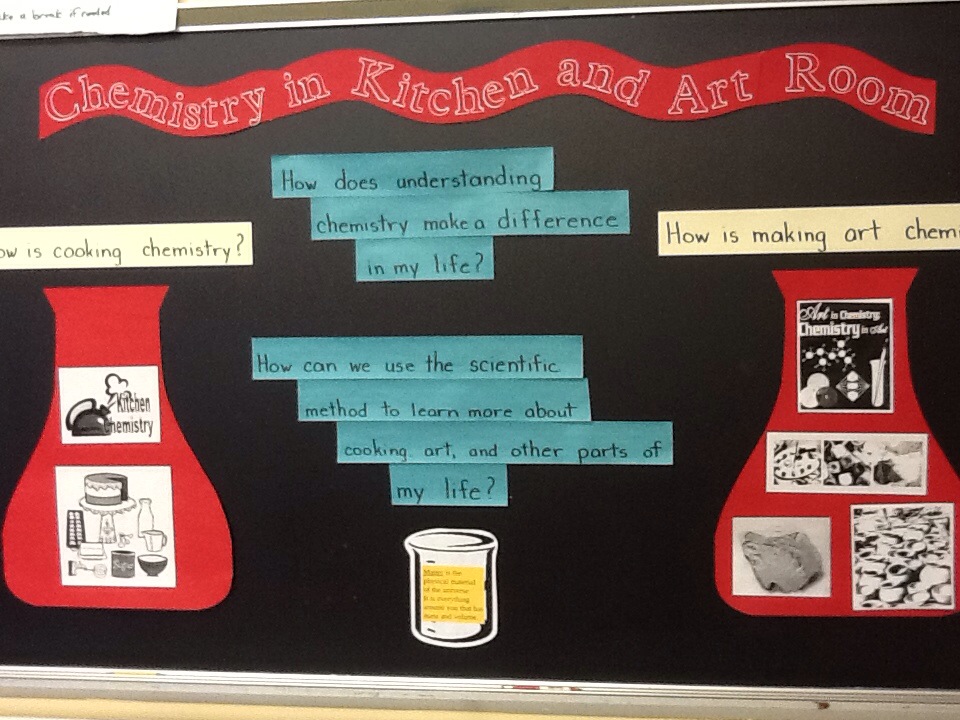 ke a break if needed
Chemistry in Kitchen and Art Room
How does understanding
chemistry make a difference
in my life?
ow is cooking chemistry?
How is making art chem
How can we use the scientific
method to learn more about
cooking, art, and other parts of
my life?
Kitchen
Chemistry
Sugar
Art in Chemistry;
Chemistry in Art
Matter is the
physical material
of the universe
It is everything
around you that has
mass and volume.